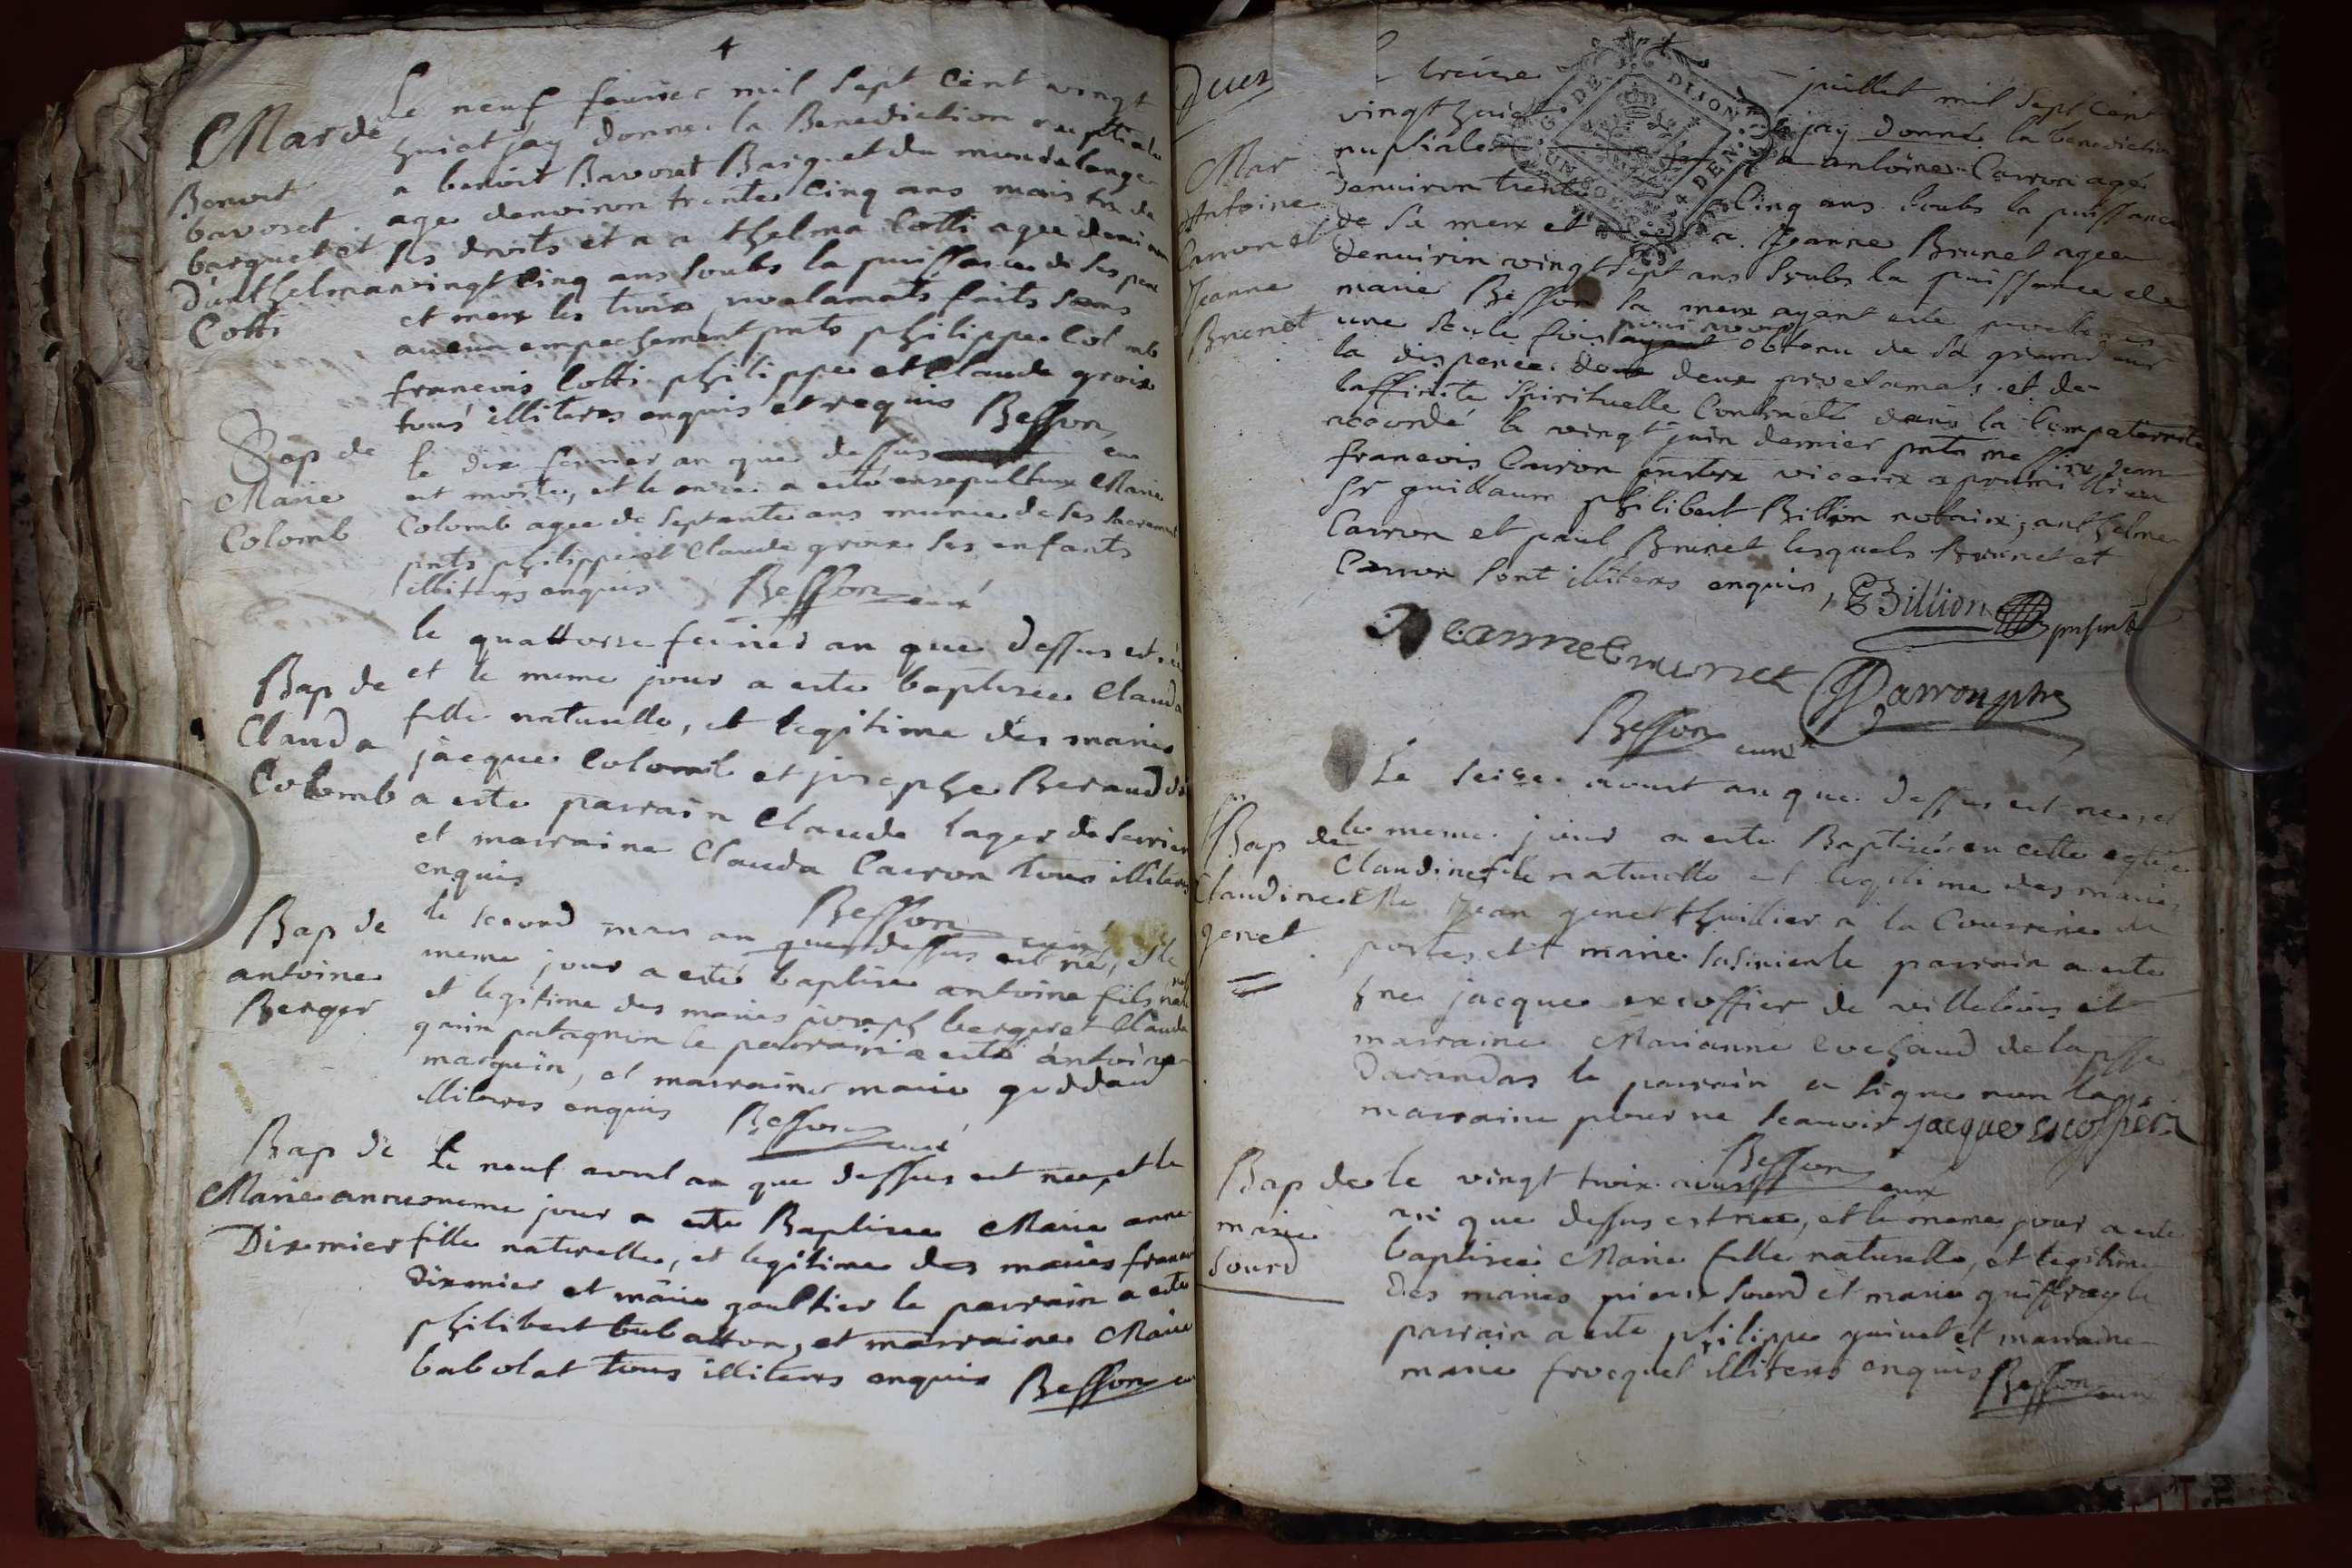 4
Mar de
Benoit
bavoset
barquet et
d'anthelma
Cotti
Le neuf feuvier mil sept cent vingt
huict jay donne la Benediction nuptiale
a benoit Bavoset Barquet du
age denviron trente cinq ans mais de
ses droits et a a thelma Cotti agee denviron
vingt cinq ans soubs la puissance de ses pere
et mere les trois proclamats faits sans
aucun empechement pnts philippe Colomb
francois Cotti philippe et Claude groix
tous illiteres enquis et requis Besson
Sep de
Marie
Colomb
le dix fevrier an que dessus
est morte, et le onze a esté ensepulture Marie
Colomb agee de septante ans munie de ses sacrements
pnts philippe et Claude groix ses enfants
illiteres enquis Besson curé
Bap de
Clauda
Colomb
le quattorse feuvier an que dessus est née
et le meme jour a este baptisee Clauda
fille naturelle, et legitime des maries
jacque Colomb et josephe Beraud
a este parrain Claude lager de Serrier
et marraine Clauda Carron tous illiteres
enquis
Besson curé
Bap de
antoine
Berger
le second mars an que dessus est né, et le
meme jour a esté baptise antoine fils nat
et legitime des maries joseph berger et Clauda
patagnin le parrain a esté antoine
marquin, et marraine marie goddard
illiteres enquis
Besson curé
Bap de
Marie anne
Dixmier
Le neuf avril an que dessus est nee, et le
meme jour a este Baptisee Marie anne
fille naturelle, et legitime des maries francois
Dixmier et marie gaultier le parrain a este
philibert bubatton, et marraine Marie
babolat tous illiteres enquis Besson cu
Mar
Antoine
Carron et
Jeanne
Brunet
treize juillet mil sept cent
vingt huict jay donné la benediction
nuptiale a antoine Carron agé
denviron trente cinq ans soubs la puissance
de sa mere et a Jeanne Brunet agee
denviron vingt sept ans soubs la puissance de
marie Besson sa mere ayant este
une seule fois obtenu de sa grandeur
la dispence de deux proclamats et de
laffinite Spirituelle Contractée dans la Compaternite
accordé le vingt juin dernier pnts messire Jean
francois Carron vicaire a
Sr guillaume philibert Billion notaire, anthelme
Carron et paul Brunet lesquels Brunet et
Carron sont illiteres enquis, Billion present
Jeanne brunet
Carron ptre
Besson curé
G. DE DIJON
UN SOL
Bap de
Claudine
genet
Le seize aoust an que dessus est nee, et
le meme jour a este Baptisée en cette eglise
Claudine fille naturelle et legitime des maries
Me Jean genet thuillier a la Courrerie de
portes et marie parrain a este
jacque excoffier de villebois et
marraine Marianne evechaud de la psse
Darandas le parrain a signe non la
marraine pour ne scavoir jacque excoffier
Besson curé
Bap de
marie
Sourd
le vingt trois aoust
an que dessus est nee, et le meme jour a este
baptisée Marie fille naturelle, et legitime
des maries pierre Sourd et marie le
parrain a este philippe quinet et marraine
marie frocquet illiteres enquis Besson curé